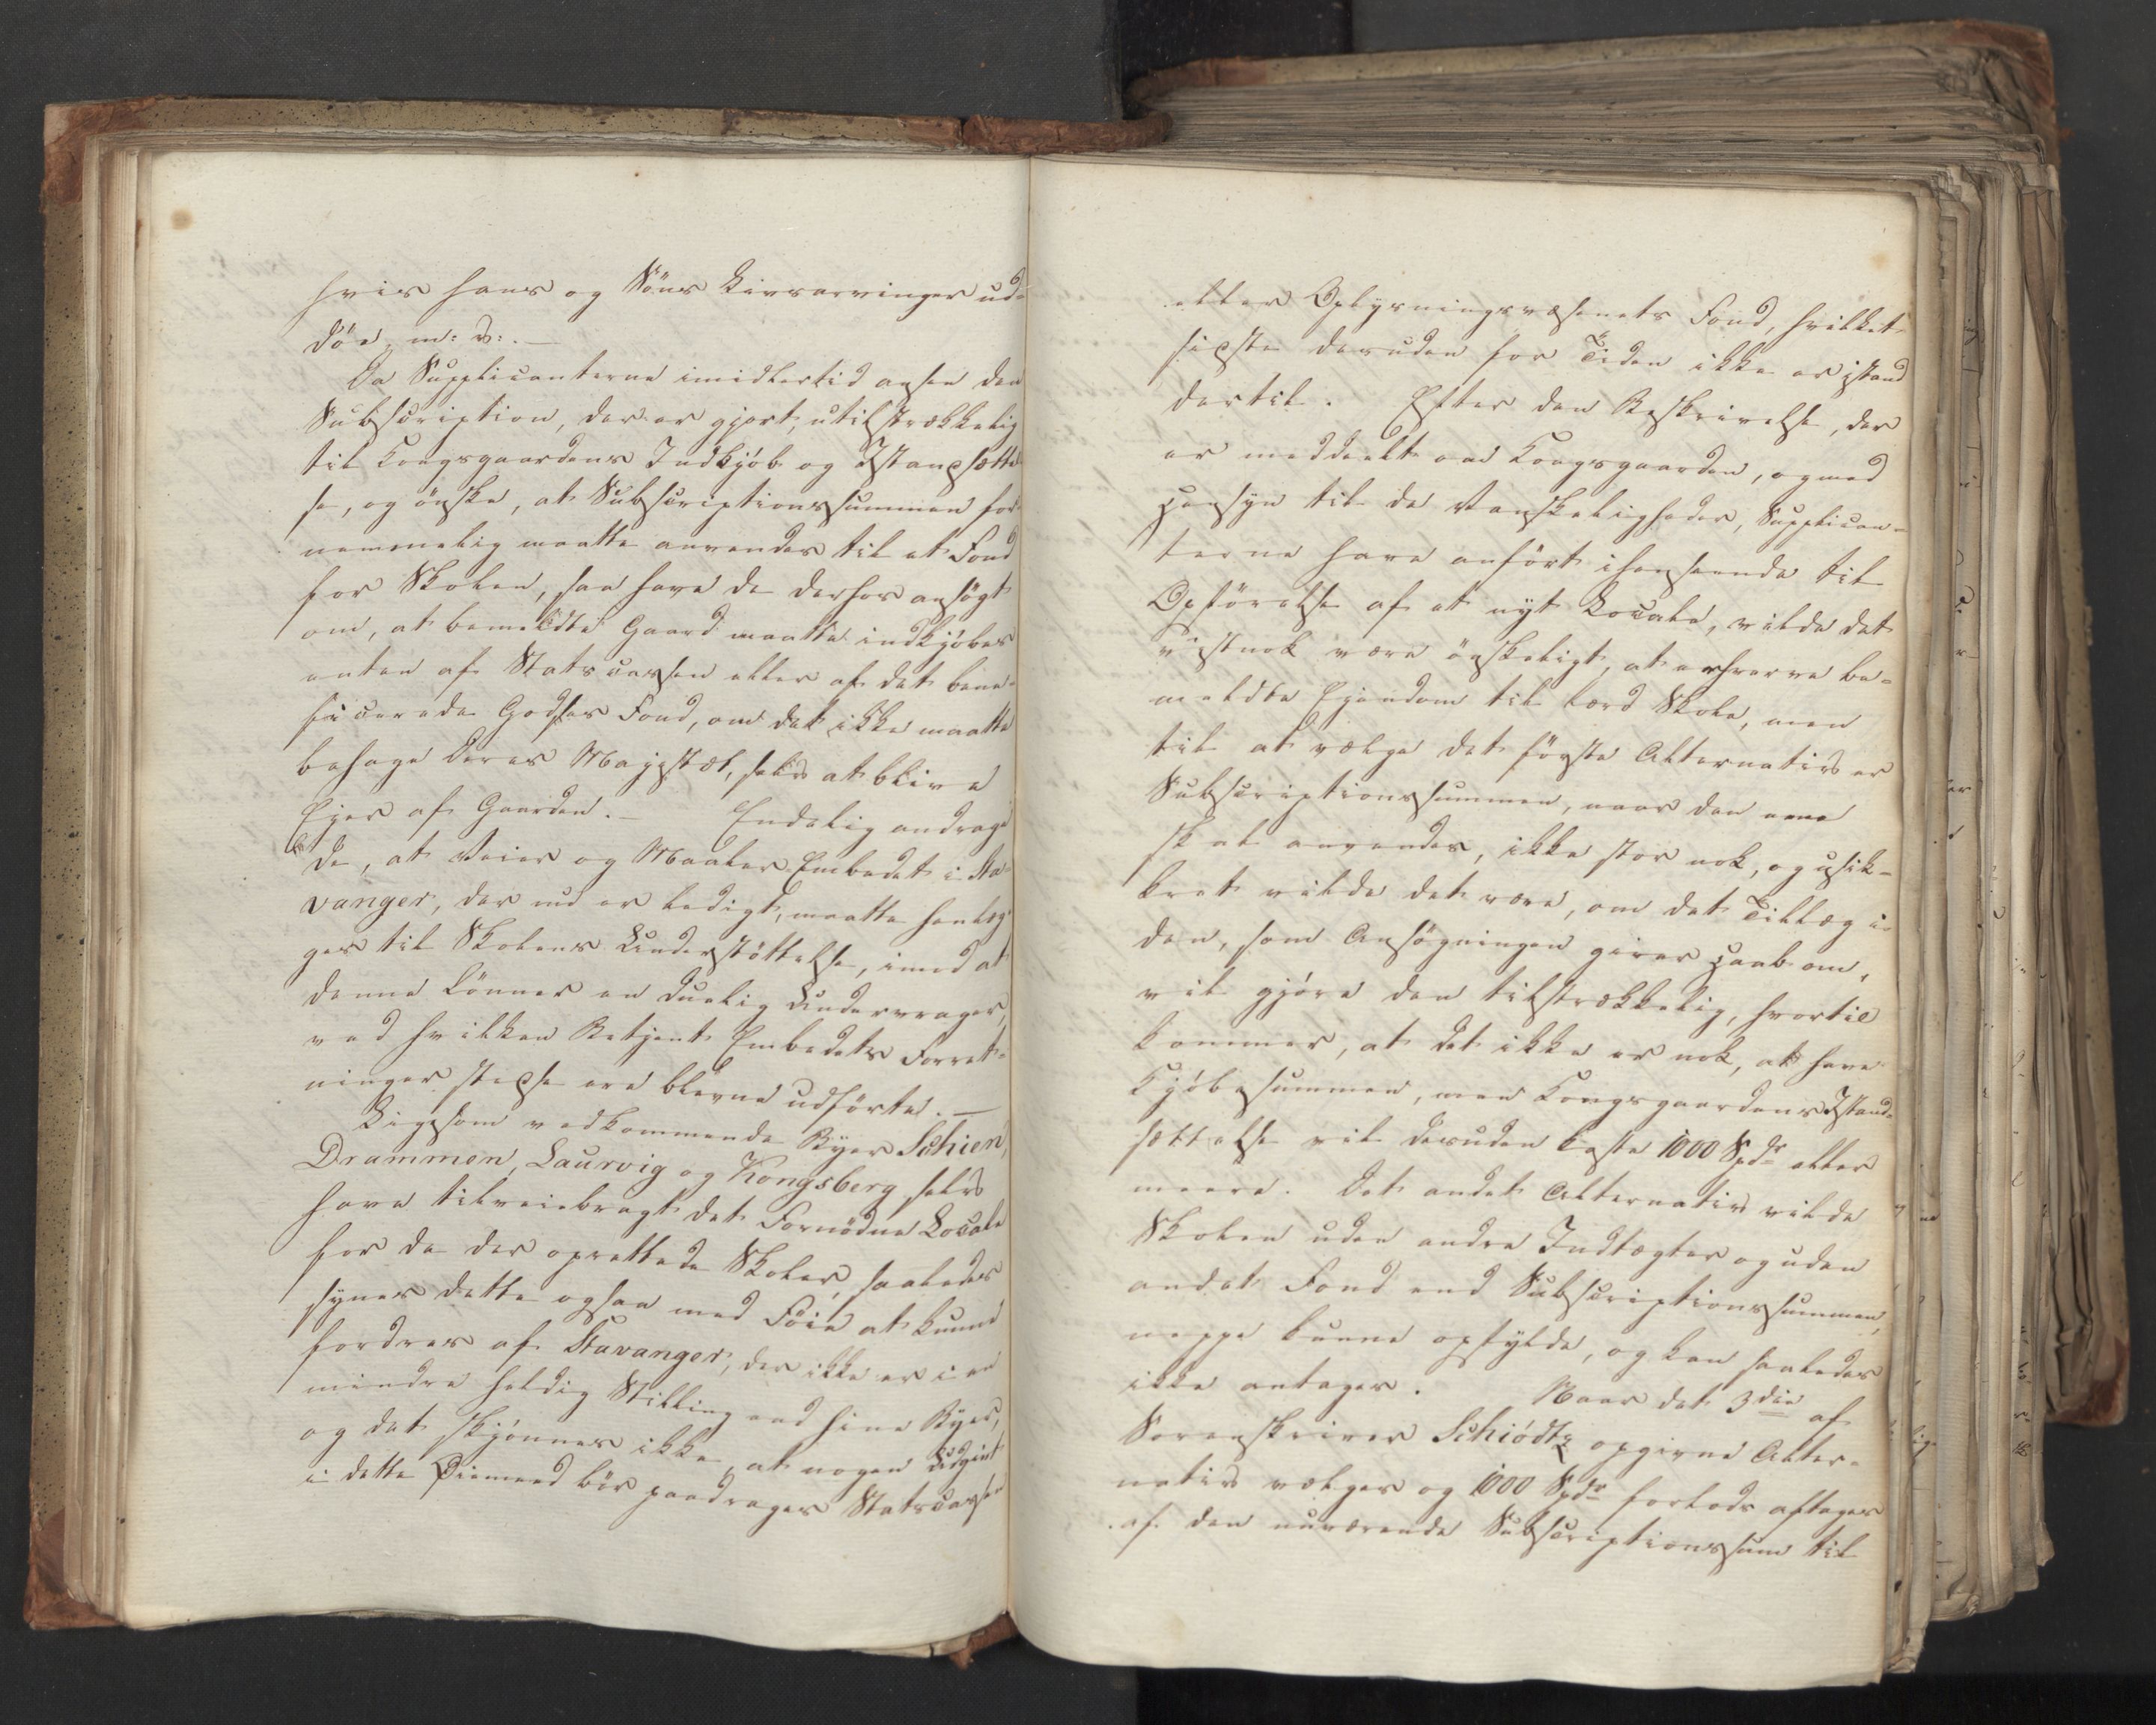 hvis hans og Søns Livsarvinger ud-
döe, m: v:. —
Da Supplicanterne imidlertid ansee den
Subscription, der er gjort, utilstrækkelig
til Kongsgaardens Indkjöb og Istandsættel-
se, og önske, at Subscriptionssummen for-
nemmelig maatte anvendes til et Fond
for Skolen, saa have de derhos ansögt
om, at bemeldte Gaard maatte indkjöbes
enten af Statscassen eller af det bene-
ficerede Godses Fond, om det ikke maatte
behage Deres Majestæt, selv at blive
Ejer af Gaarden. — Endelig andrage
de, at Veier og Maaler Embedet i Sta-
vanger, der nu er ledigt, maatte henlæg-
ges til Skolens Understöttelse, imod at
denne lönner en duelig Undervrager,
ved hvilken Betjent Embedets Forret-
ninger stedse ere blevne udförte. —
Ligesom vedkommende Byer Schien,
Drammen, Laurvig og Kongsberg selv
have tilveiebragt det Fornödne Locale
for de der oprettede Skoler, saaledes
synes dette ogsaa med Föie at kunne
fordres af Stavanger, der ikke er i en
mindre heldig Stilling end hine Byer,
og det skjönnes ikke, at nogen Udgivt
i dette Öiemeed bör paadrages Statscassen
eller Oplysningsvæsenets Fond, hvilket
sidste desuden for Tiden ikke er istand
dertil. Efter den Beskrivelse, der
er meddeelt om Kongsgaarden, og med
Hensyn til de Vanskeligheder, Supplican-
terne have anfört ihenseende til
Opförelse af et nyt Locale, vilde det
vistnok være önskeligt, at erhverve be-
meldte Ejendom til lærd Skole, men
til at vælge det förste Alternativ er
Subscriptionssummen, naar den ene
skal anvendes, ikke stor nok, og usik-
kert vilde det være, om det Tillæg i
den, som Ansögningen giver Haab om,
vil gjöre den tilstrækkelig, hvortil
kommer, at det ikke er nok, at have
Kjöbesummen, men Kongsgaardens Istand-
sættelse vil desuden koste 1000 Spdr eller
meere. Det andet Alternativ vilde
Skolen uden andre Indtægter og uden
andet Fond end Subscriptionssummen,
neppe kunne opfylde, og kan saaledes
ikke antages. Naar det 3die af
Sorenskriver Schiödtz opgivne Alter-
nativ vælges og 1000 Spdr forlods aftages
af den nuværende Subscriptionssum til